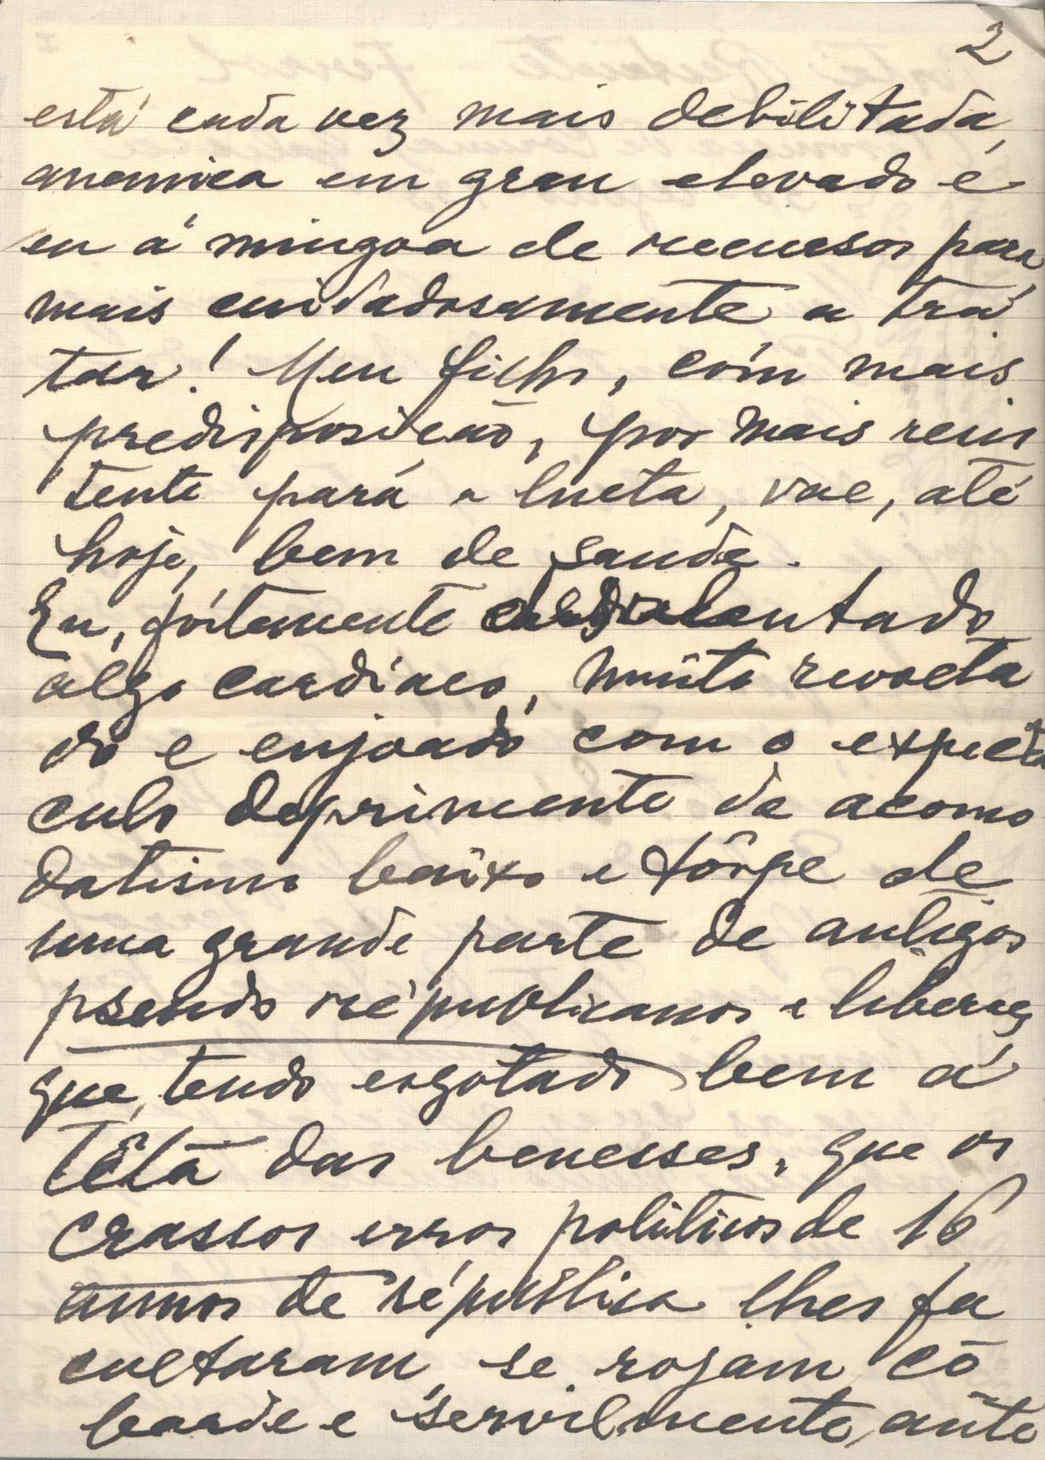 2
está cada vez mais debilitada,
anemica em grau elevado e
eu á mingoa de recursos para
mais cuidadosamente a tra
tar! Meu filho, com mais
predisposição, por mais resis
tente pará a lucta, vae, até
hoje, bem de saude.
Eu, fortemente
algo cardiaco, muito revolta
do e enjoado com o expecta
culo deprimente da acomo
datismo baixo e tôrpe de
uma grande parte de antigos
pseudo républicanos e liberaes
que, tendo esgotado bem á
têta das benesses, que os
crassos erros politicos de 16
annos de républica lhes fa
cultaram, se rojam co
barde e servilmente, ante